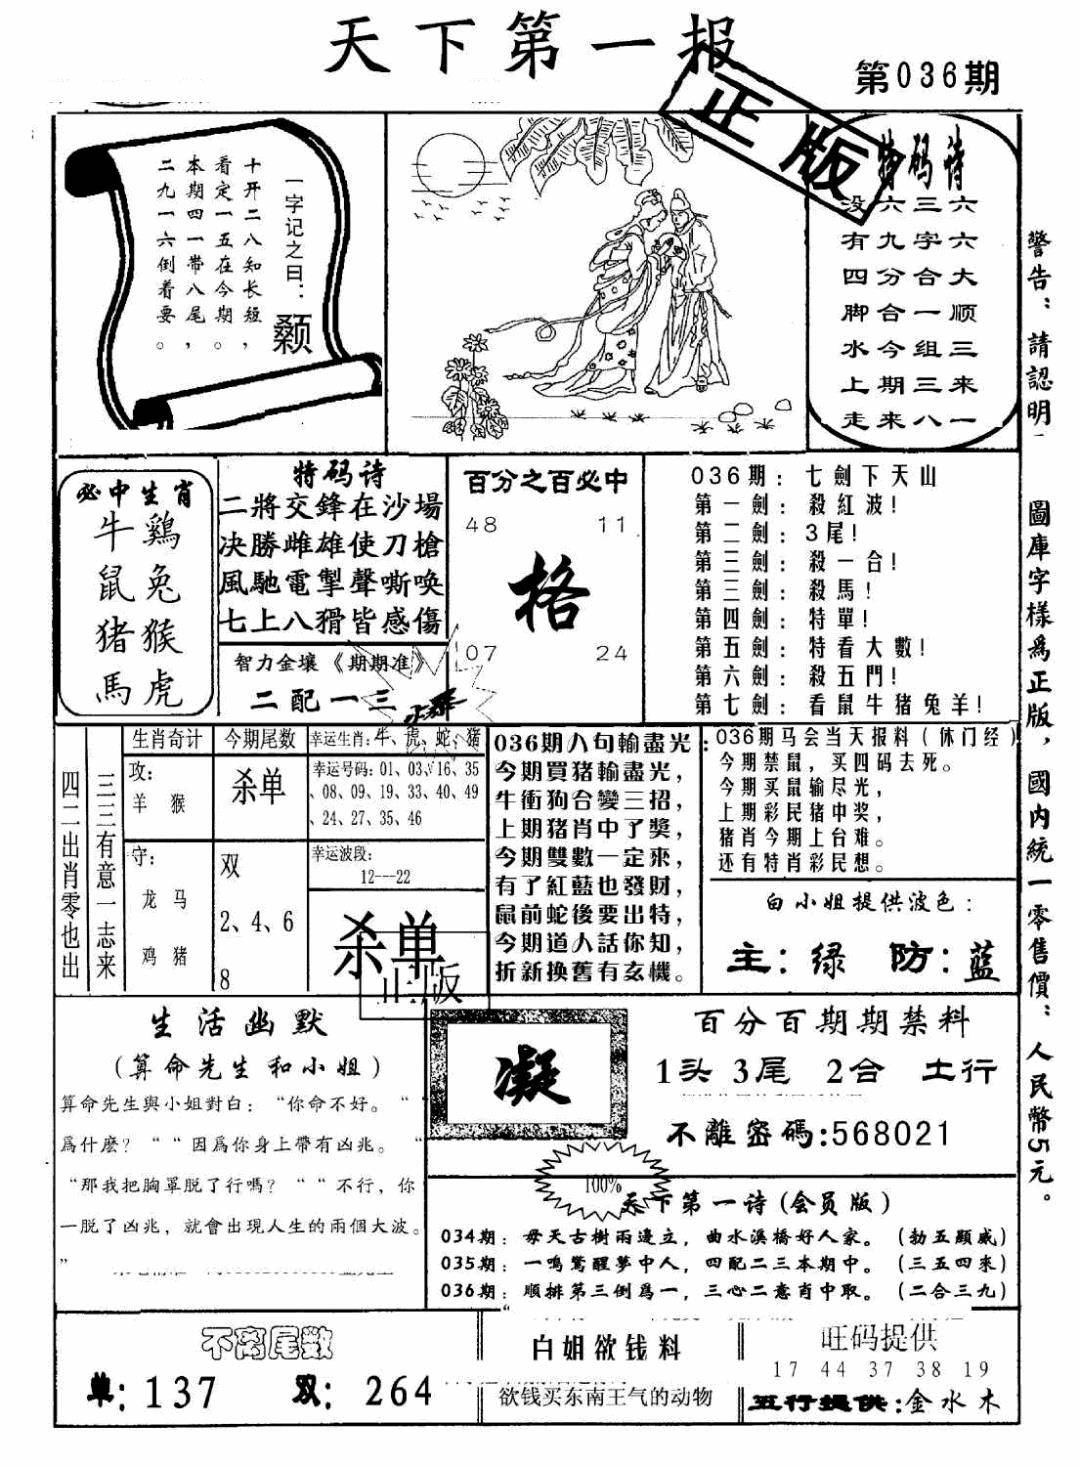 天下第一报
第036期
正版
一字记之曰：颡
十开二八知长短，
看定一五在今期。
本期四一带八尾，
二九一六倒着要。
特码诗
没六三六
有九字六
四分合大
脚合一顺
水今组三
上期三来
走来八一
警告：請認明
圖庫字樣爲正版，國內統一零售價：人民幣5元。
必中生肖
牛鷄
鼠兔
猪猴
馬虎
特码诗
二將交鋒在沙場
决勝雌雄使刀槍
風馳電掣聲嘶唤
七上八猾皆感傷
智力金壤《期期准》
二配一三
百分之百必中
48 11
格
07 24
036期：七劍下天山
第一劍：殺紅波！
第二劍：3尾！
第三劍：殺一合！
第三劍：殺馬！
第四劍：特單！
第五劍：特看大數！
第六劍：殺五門！
第七劍：看鼠牛猪兔羊！
四二出肖零也出
三三有意一志来
生肖奇计
攻：
羊 猴
守：
龙 马
鸡 猪
今期尾数
杀单
双
2、4、6
8
幸运生肖：牛、虎、蛇、猪
幸运号码：01、03、16、35
、08、09、19、33、40、49
、24、27、35、46
幸运波段：
12---22
杀单
正版
036期八句輸盡光：
今期買猪輸盡光，
牛衝狗合變三招，
上期猪肖中了獎，
今期雙數一定來，
有了紅藍也發財，
鼠前蛇後要出特，
今期道人話你知，
折新换舊有玄機。
036期马会当天报料（休门经）
今期禁鼠，买四码去死。
今期买鼠输尽光，
上期彩民猪中奖，
猪肖今期上台难。
还有特肖彩民想。
白小姐提供波色：
主：绿 防：蓝
生活幽默
（算命先生和小姐）
算命先生與小姐對白：“你命不好。“
爲什麽？““因爲你身上帶有凶兆。“
“那我把胸罩脱了行嗎？““不行，你
一脱了凶兆，就會出現人生的兩個大波。
”
凝
百分百期期禁料
1头 3尾 2合 土行
不離密碼:568021
100%
天下第一诗(会员版)
034期：毋天古樹兩邊立，曲水溪橋好人家。（勃五顯威）
035期：一鳴驚醒夢中人，四配二三本期中。（三五四來）
036期：順排第三倒爲一，三心二意肖中取。（二合三九）
不离尾数
单：137 双：264
白姐欲钱料
欲钱买东南王气的动物
旺码提供
17 44 37 38 19
五行提供:金水木